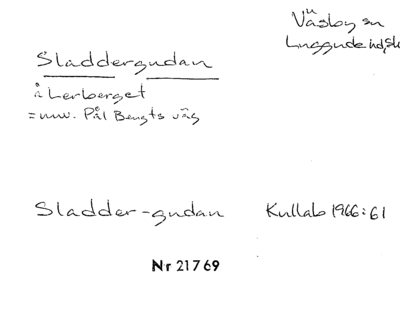 Väsby sn
Luggude hd, Sk
Sladdergudan
å Lerberget
= nuv. Pål Bengts väg
Sladder-gudan Kullab 1966:61
Nr 21769